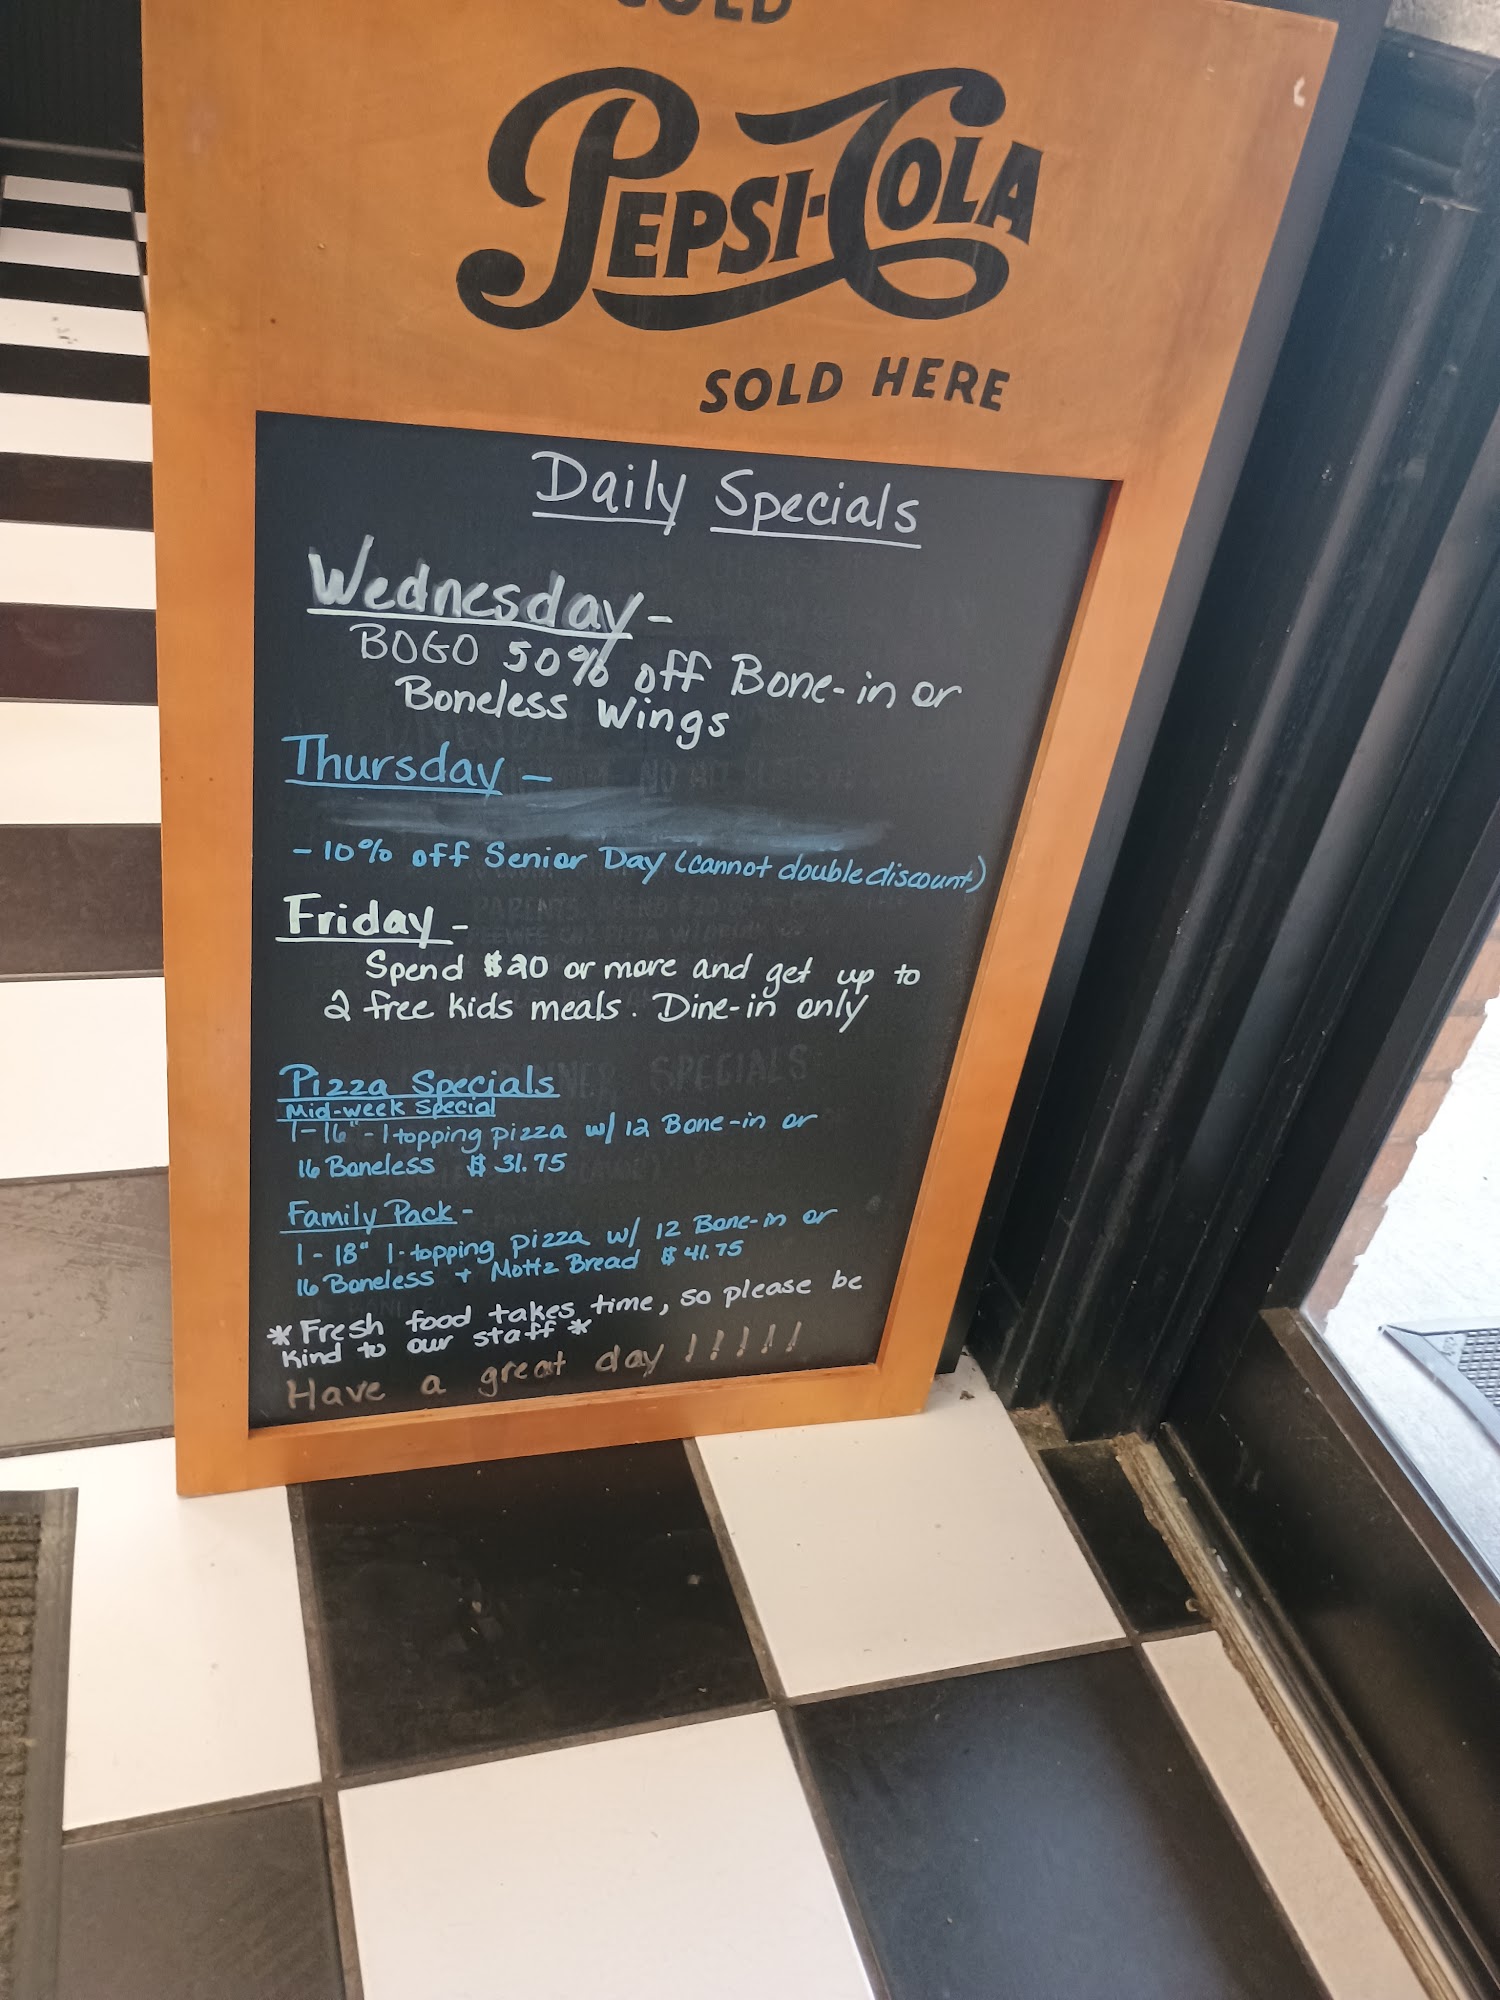 COLD
PEPSI-COLA
SOLD HERE
Daily Specials
Wednesday -
BOGO 50% off Bone-in or
Boneless Wings
Thursday -
- 10% off Senior Day (cannot double discount)
Friday -
Spend $20 or more and get up to
2 free kids meals. Dine-in only
Pizza Specials
Mid-week Special
1-16"-1 topping pizza w/ 12 Bone-in or
16 Boneless $31.75
Family Pack -
1-18" 1-topping pizza w/ 12 Bone-in or
16 Boneless + Mottz Bread $41.75
*Fresh food takes time, so please be
kind to our staff*
Have a great day!!!!!